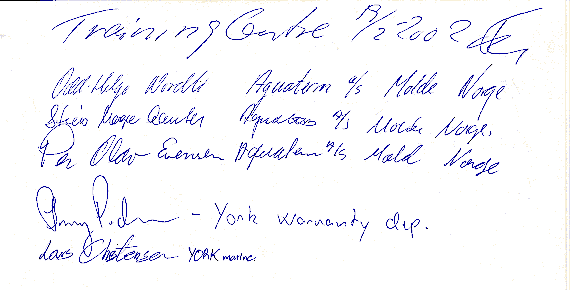 Training Centre 19/2 2002
Odd-Helge Aquaterm A/S Molde Norge
Stein Aquaterm A/S Molde Norge.
Per Olav Evensen Aquaterm A/S Mold Norge
- York warranty dep.
Lars Christensen YORK marine